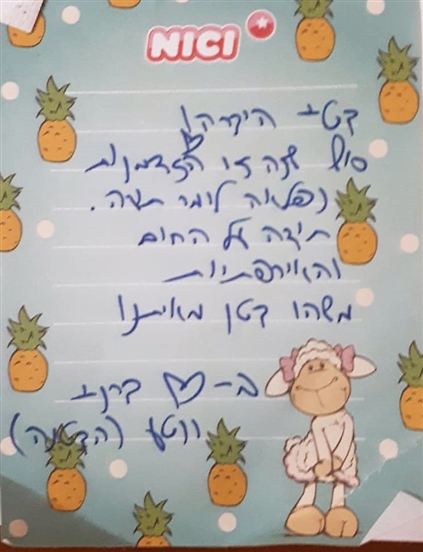 NICI
היקרה!
סוף שנה זו הזדמנות
נפלאה לומר תודה.
תודה על החום
והאיכפתיות
משהו קטן מאיתנו
ב-♡
ונטע (הקטנה)